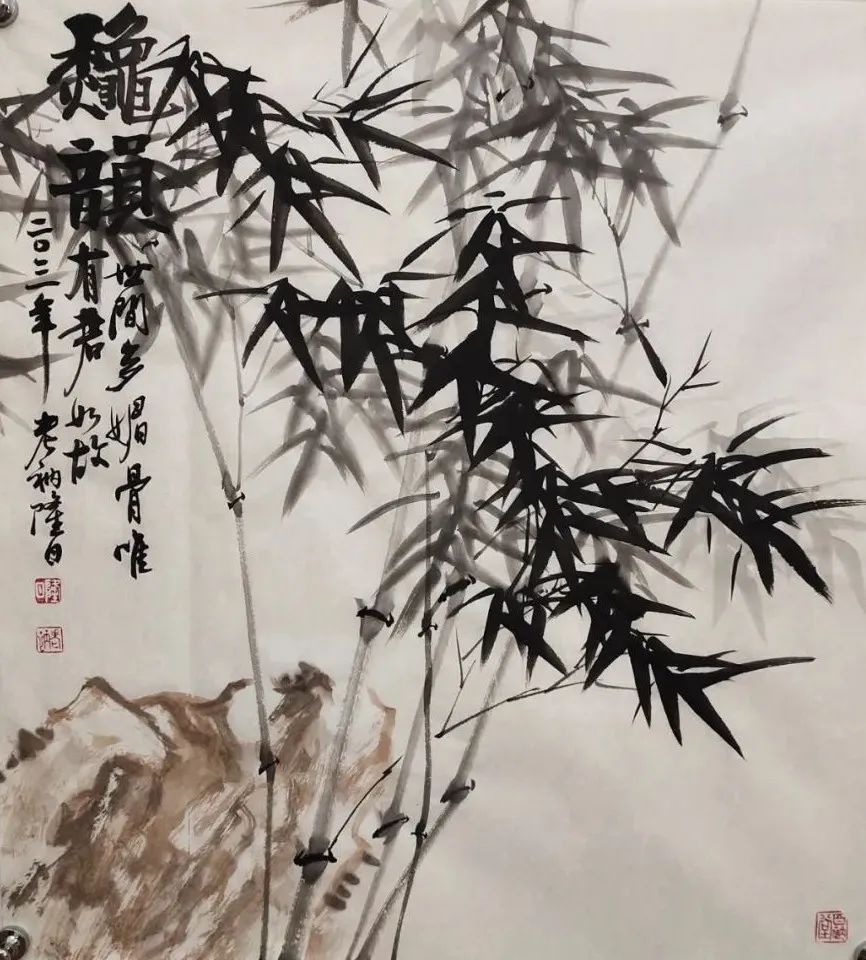 龝韻
世間多媚骨唯
有君如故
二〇二一年 老衲隆日